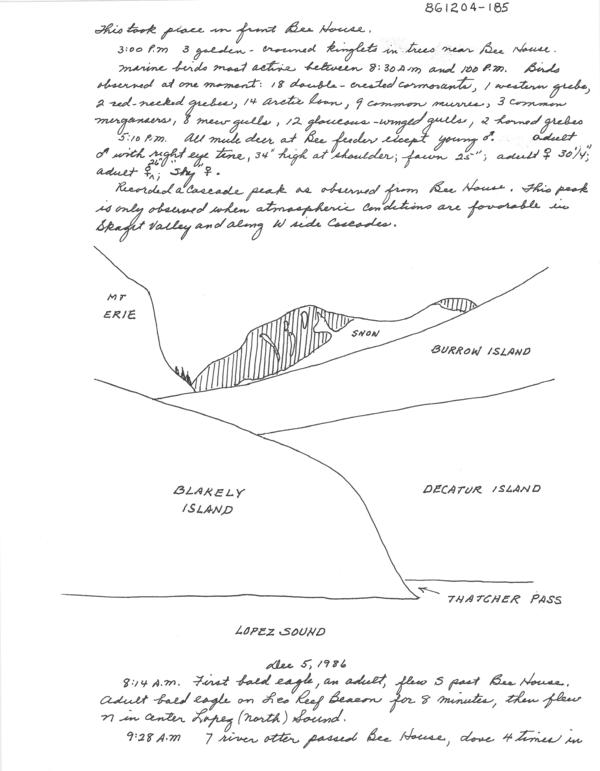 861204-185
This took place in front Bee House.
3:00 P.M 3 golden-crowned kinglets in trees near Bee House.
Marine birds most active between 8:30 A.M and 1:00 P.M. Birds
observed at one moment: 18 double-crested cormorants, 1 western grebe,
2 red-necked grebes, 14 arctic loon, 9 common murres, 3 common
mergansers, 8 mew gulls, 12 glaucous-winged gulls, 2 horned grebes
5:10 P.M. All mule deer at Bee feeder except young ♂. adult
♂ with right eye tine, 34" high at shoulder; fawn 25"; adult ♀ 30 1/4";
adult ♀, "Sky" ♀.
Recorded a Cascade peak as observed from Bee House. This peak
is only observed when atmospheric conditions are favorable in
Skagit Valley and along W side Cascades.
MT
ERIE
SNOW
BURROW ISLAND
BLAKELY
ISLAND
DECATUR ISLAND
THATCHER PASS
LOPEZ SOUND
Dec 5, 1986
8:14 A.M. First bald eagle, an adult, flew S past Bee House.
Adult bald eagle on Leo Reef Beacon for 8 minutes, then flew
N in center Lopez (north) Sound.
9:28 A.M 7 river otter passed Bee House, dove 4 times in